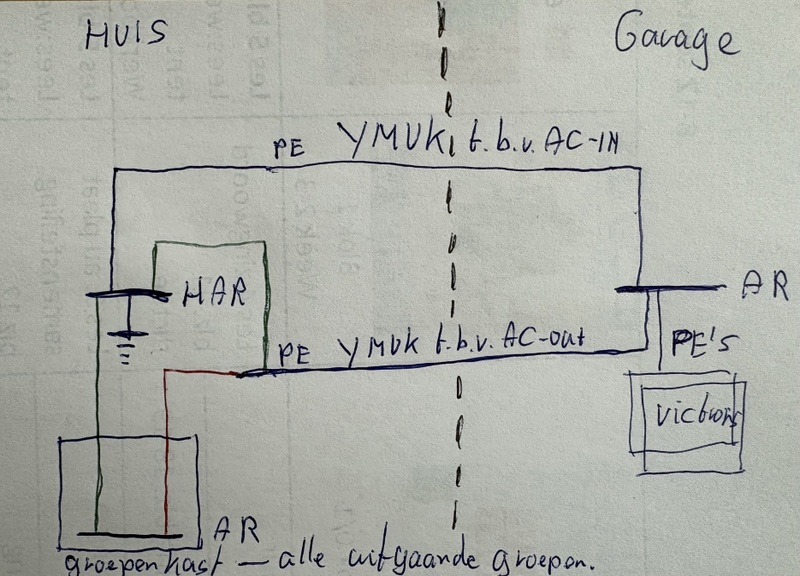 HUIS
Garage
PE YMVK t.b.v. AC-IN
HAR
AR
PE YMVK t.b.v. AC-out
PE's
victrons
AR
groepenkast — alle uitgaande groepen.